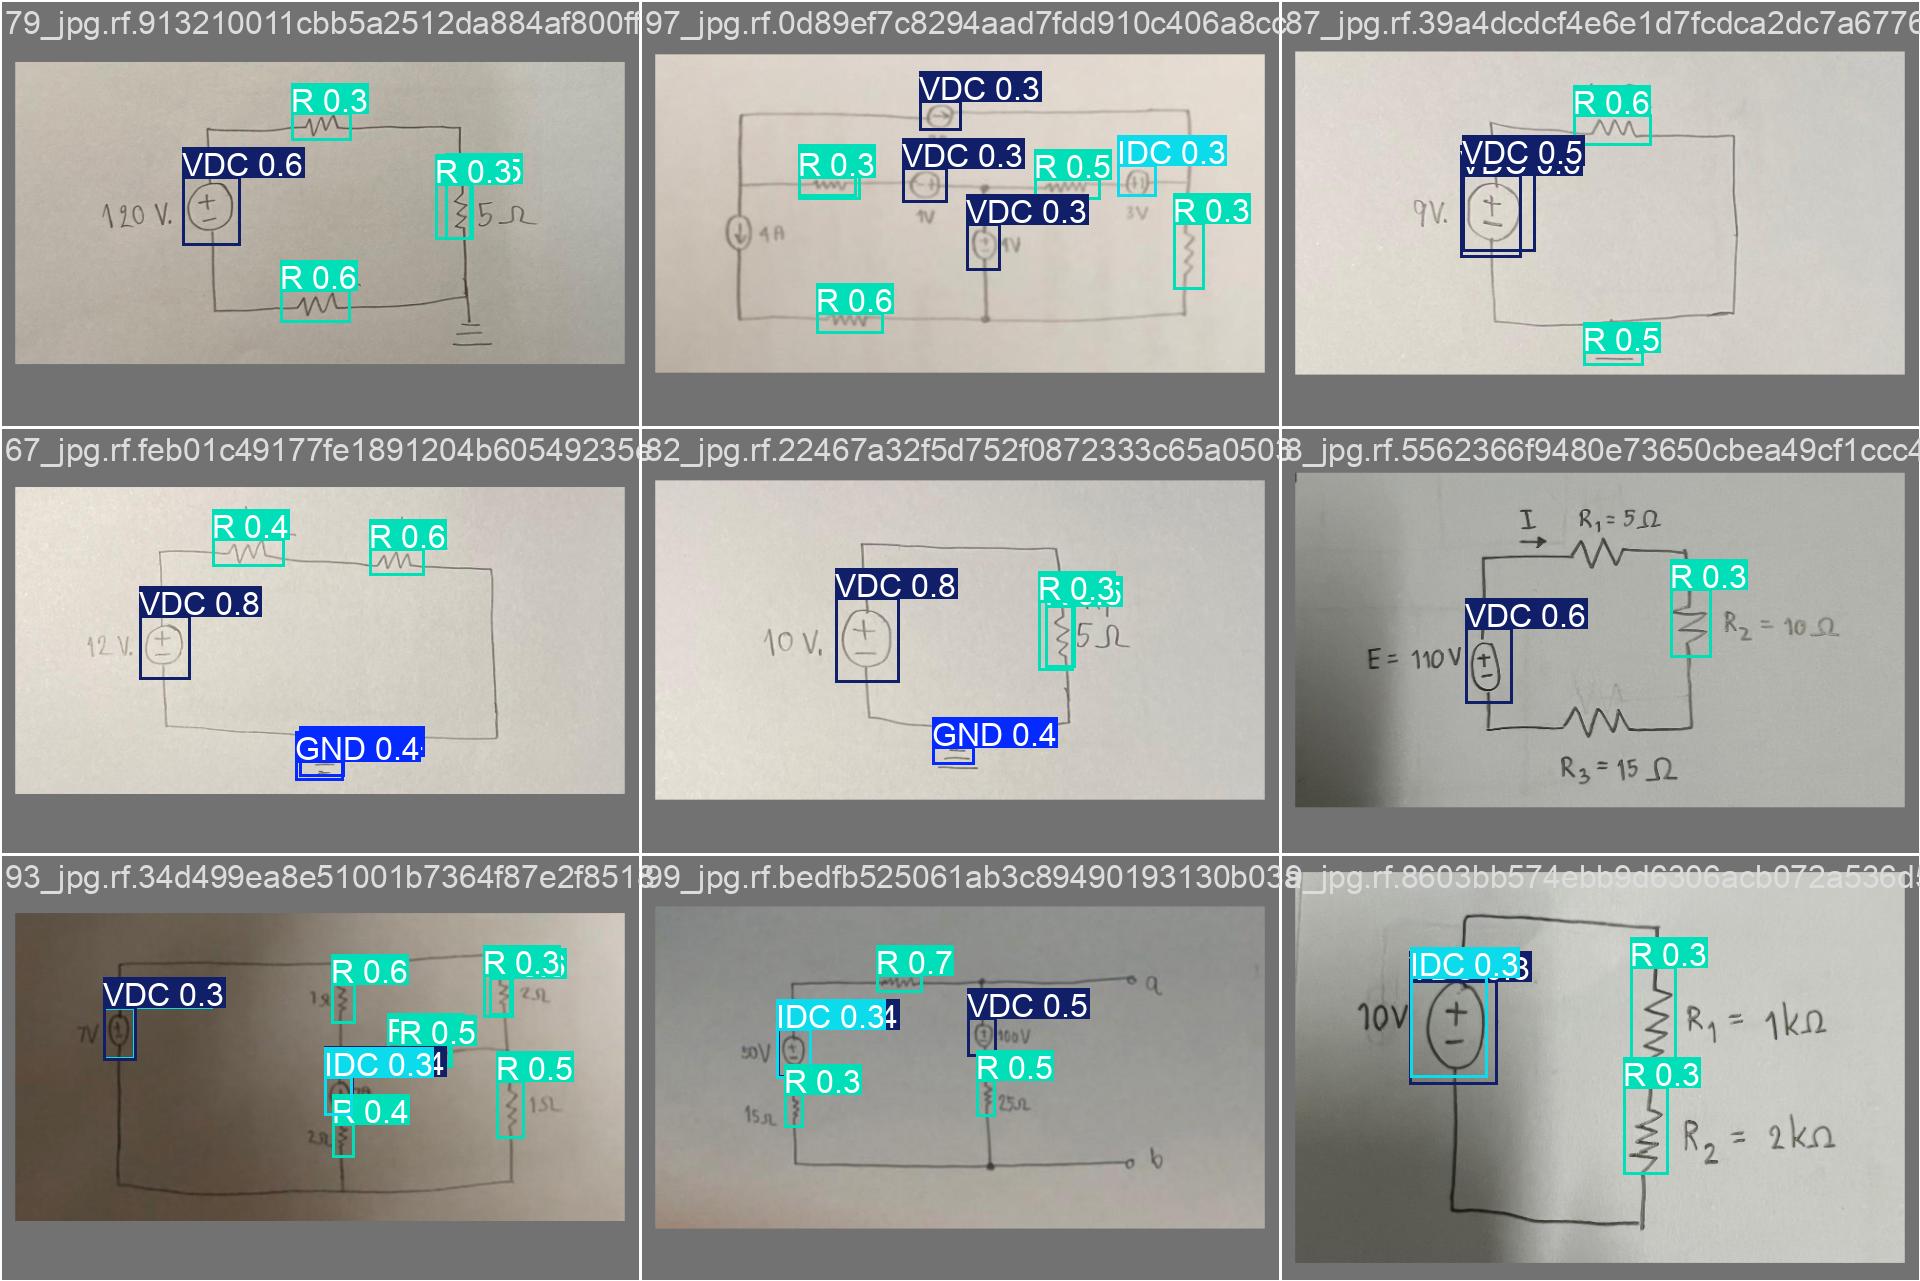 79_jpg.rf.913210011cbb5a2512da884af800ff
R 0.3
VDC 0.6
R 0.3
120 V.
+
−
5 Ω
R 0.6
97_jpg.rf.0d89ef7c8294aad7fdd910c406a8cc
VDC 0.3
R 0.3
VDC 0.3
R 0.5
IDC 0.3
1V
3V
VDC 0.3
R 0.3
4A
R 0.6
87_jpg.rf.39a4dcdcf4e6e1d7fcdca2dc7a6776
R 0.6
VDC 0.5
9V.
+
−
R 0.5
67_jpg.rf.feb01c49177fe1891204b60549235e
R 0.4
R 0.6
VDC 0.8
12 V.
+
−
GND 0.4
82_jpg.rf.22467a32f5d752f0872333c65a0503
VDC 0.8
R 0.3
10 V.
+
−
5 Ω
GND 0.4
8_jpg.rf.5562366f9480e73650cbea49cf1ccc4
I
R1 = 5 Ω
R 0.3
VDC 0.6
R2 = 10 Ω
E = 110 V
+
−
R3 = 15 Ω
93_jpg.rf.34d499ea8e51001b7364f87e2f8513
R 0.6
R 0.3
VDC 0.3
1Ω
2Ω
7V
R 0.5
IDC 0.3
R 0.5
R 0.4
1Ω
2Ω
99_jpg.rf.bedfb525061ab3c89490193130b03
R 0.7
a
VDC 0.5
IDC 0.3
100V
50V
R 0.5
R 0.3
25Ω
15Ω
b
_jpg.rf.8603bb574ebb9d6306acb072a536d5
IDC 0.3
R 0.3
10V
+
−
R1 = 1kΩ
R 0.3
R2 = 2kΩ